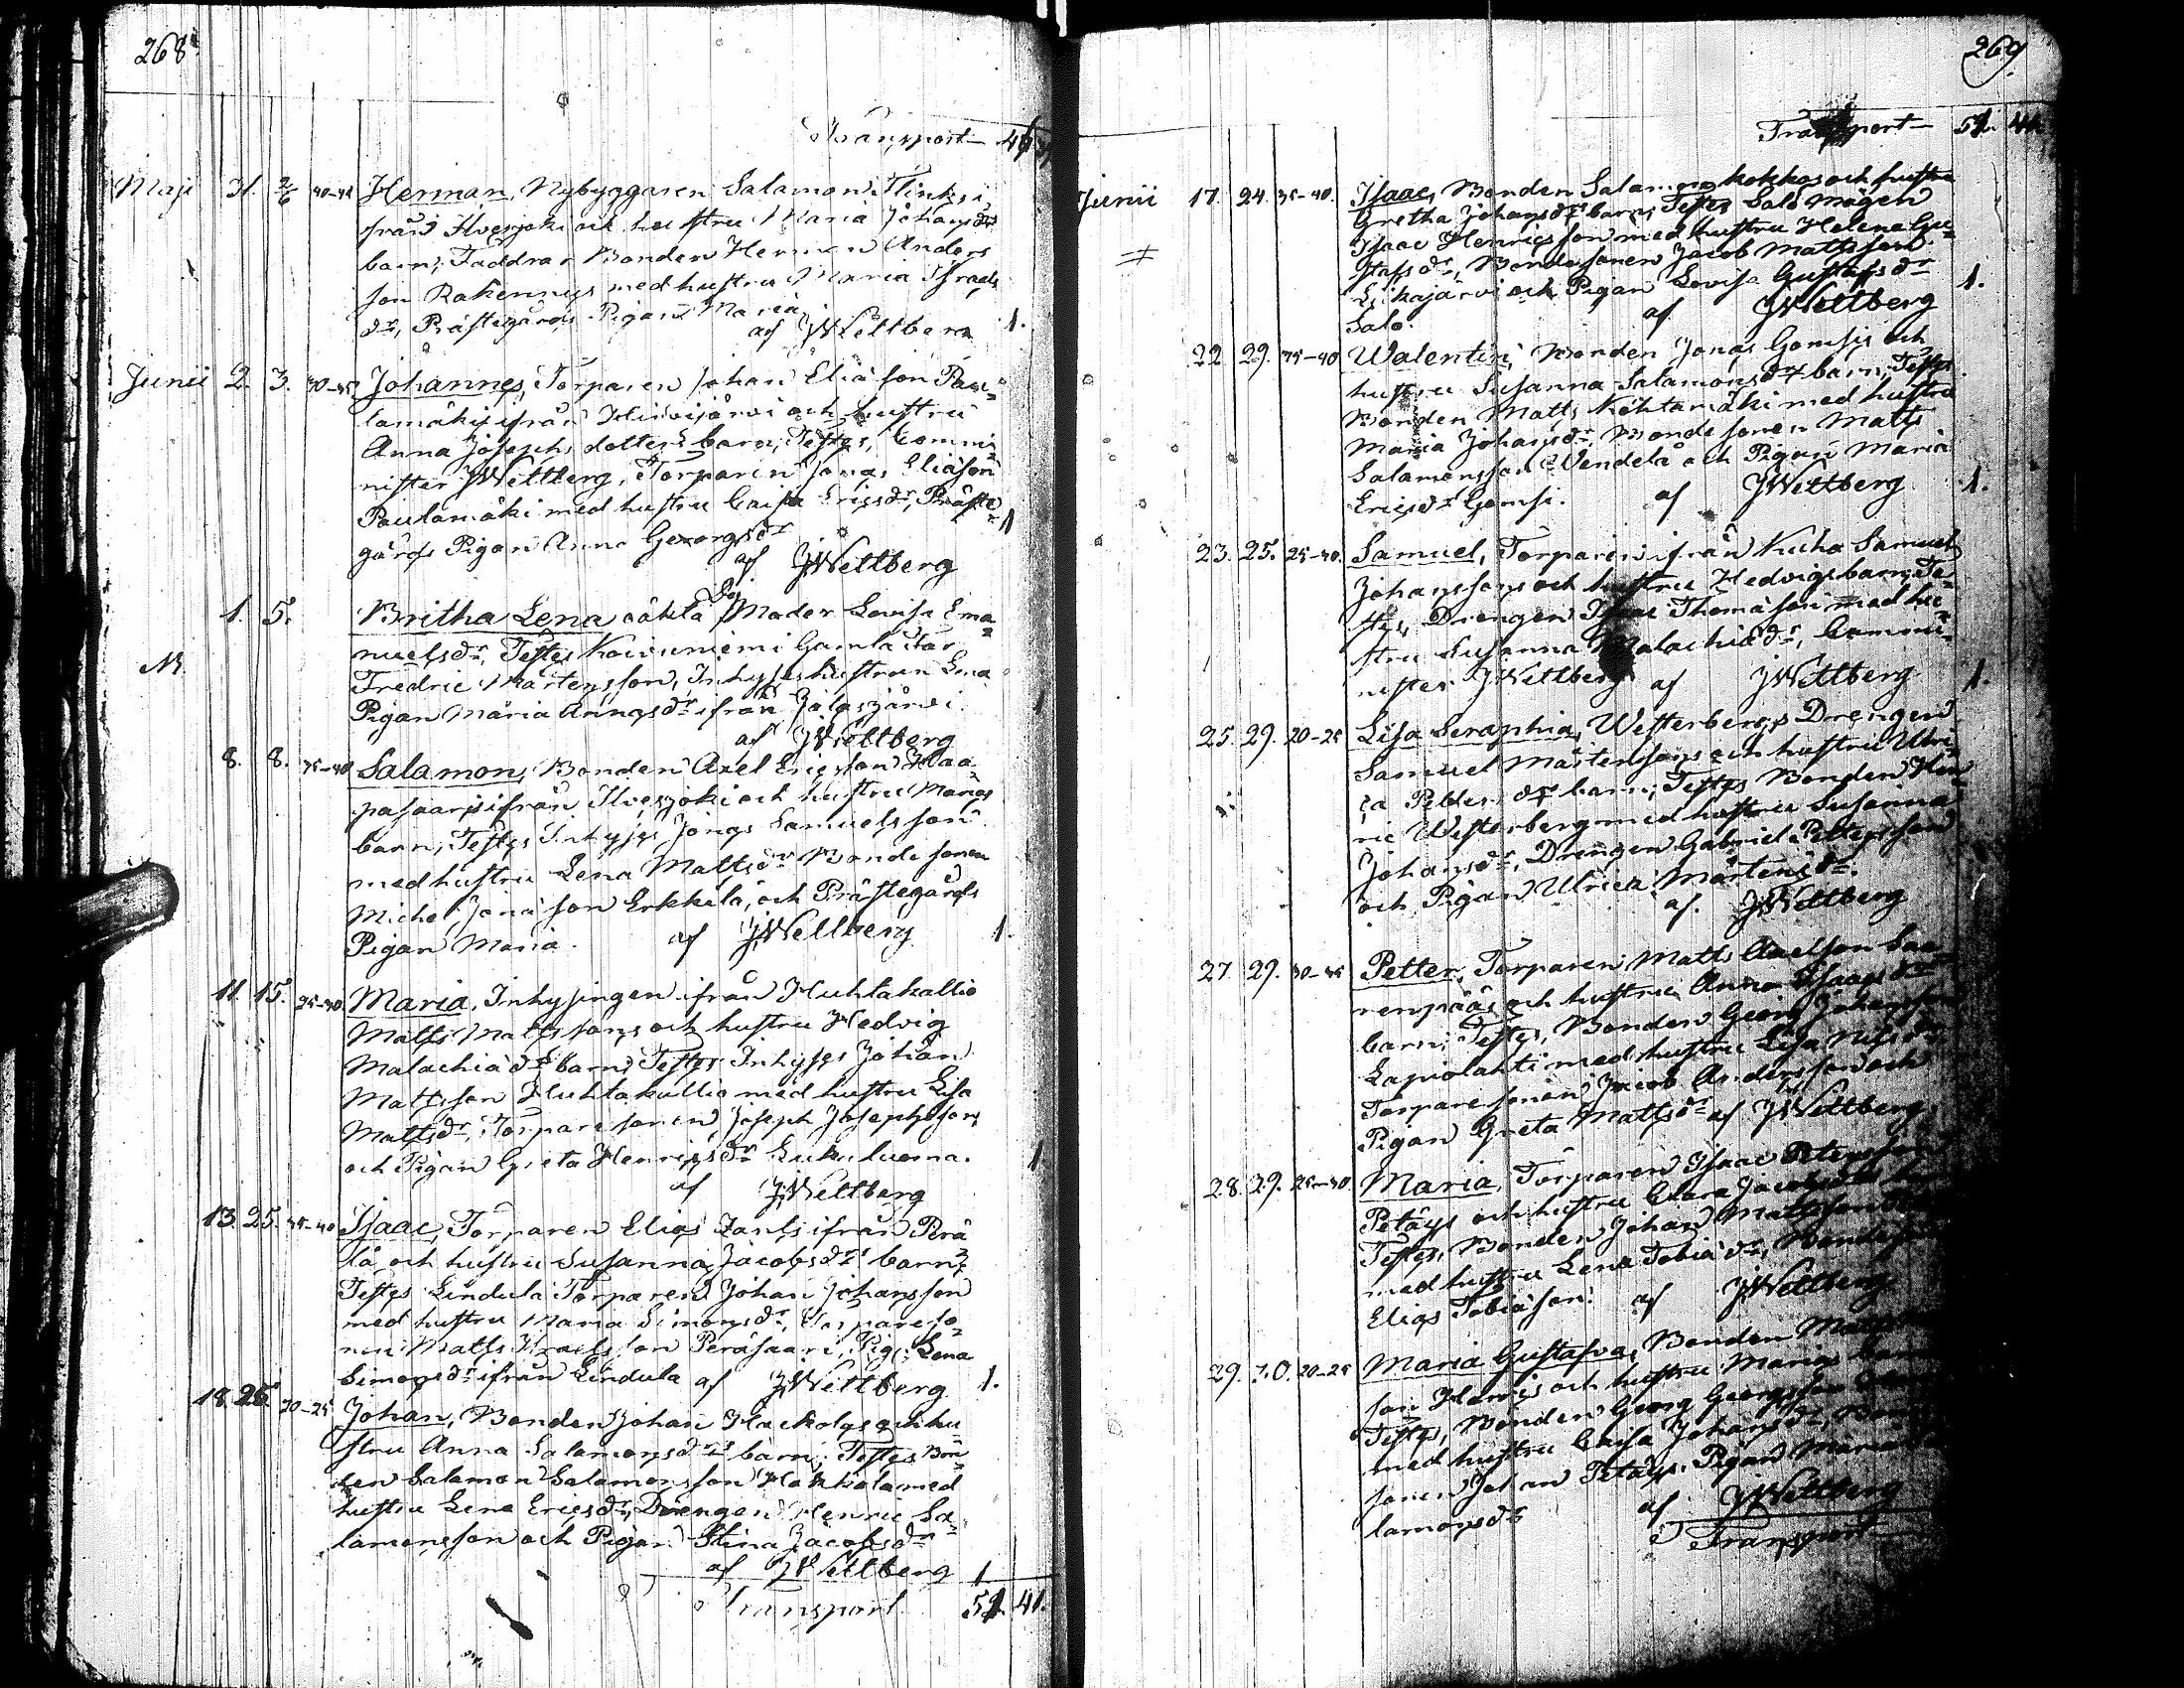 268
Transport
Maji 31. 2/6 40-42 Herman, Nybyggaren Salamon Flinks i,
från Ilvesjoki och hustru Maria Johansdrs
barn; Faddrar Bonden Herman Anders
son Rakennus med hustru Maria Israels
dr, Prästegårds Pigan Maria
af JWettberg 1.
Junii 2. 3. 30-35 Johannes, Torparen Johan Eliäson Pau-
lamäkis ifrån Hirvijärvi och hustru
Anna Josephs dotters barn; Testes, Commi-
nister JWettberg, Torparen Jonas Eliäson
Paulamäki med hustru Caisa Ericsdr, Präste-
gårds Pigan Anna Georgsdr 1
af JWettberg
1. 5. Britha Lena oäkta Moder Lovisa Ema-
nuelsdr, Testes Koivuniemi Gamla Far
Fredric Mårtensson, Inhyses hustrun Lena
Pigan Maria Annasdr ifrån Jalasjärvi.
af JWettberg
8. 8. 35-40 Salamon, Bonden Axel Ericsson Haa-
pasaaris ifrån Ilvesjoki och hustru Marias
barn, Testes Inhyses Jonas Samuelsson
med hustru Lena Mattsdr Bonde sonen
Michel Jonäson Erkkilä, och Prästegårds
Pigan Maria. af JWettberg 1.
11. 15. 25-30 Maria, Inhysingen ifrån Huhtakallio
Matts Mattssons och hustru Hedvig
Malachiädrs barn; Testes Inhyses Johan
Mattsson Huhtakallio med hustru Lisa
Mattsdr, Torpare sonen Joseph Josephsson
och Pigan Greta Henricsdr Lukuluoma. 1
af JWettberg
13. 25. 35-40 Isaac, Torparen Elias Zants ifrån Perä
lä och hustru Susanna Jacobsdrs barn;
Testes Lindula Torparen Johan Johansson
med hustru Maria Simonsdr, Torpareso-
nen Matts Israelsson Peräsaari, Pig: Lena
Simonsdr ifrån Lindula af JWettberg 1.
18. 25. 20-25 Johan, Bonden Johan Hackolas och hu-
stru Anna Salamonsdrs barn; Testes Bon-
den Salamon Salamonsson Hakkola med
hustru Lena Ericsdr, Drengen Henric Sa-
lamonsson och Pigan Stina Jacobsdr
af JWettberg 1
Transport 51. 41.
269
Transport 51. 41
Junii 17. 24. 35-40. Isaac, Bonden Salamon kokkos och hustru
Gretha Johansdrs barn; Testes Salo mågen
Isaac Henricsson med hustru Helena Gu-
stafsdr, Bonde sonen Jacob Mattsson
Leikajärvi och Pigan Lovisa Gustafsdr 1.
Salo. af JWettberg
22 29. 35-40 Walentin, Bonden Jonas Gomsis och
hustru Susanna Salamonsdrs barn; Testes
Bonden Matts Köhtamäki med hustru
Maria Johansdr, Bonde sonen Matts
Salamonsson Wendelä och Pigan Maria
Ericsdr Gomsi. af JWettberg 1.
23. 25. 25-30. Samuel, Torparen ifrån Kuha Samuel
Johanssons och hustru Hedvigs barn; Te-
stes, Drengen Isaac Thomäson med hu
stru Susanna Malachiädr, Commi-
nister JWettberg af JWettberg 1.
25. 29. 20-25 Lisa Seraphia, Westerbergs Drengen
Samuel Mårtensons och hustru Ulri-
ca Petters drs barn; Testes Bonden Hen
ric Westerberg med hustru Susanna
Johansdr, Drengen Gabriel Pettersson
och Pigan Ulrica Mårtensdr.
af. JWettberg
27. 29. 30-35 Petter, Torparen Matts Axelson Saa-
renpääs och hustru Anna Isaacsdr
barn; Testes, Bonden Georg Johansson
Lapiolahti med hustru Lisa Nilsdr
Torpare sonen Jacob Andersson och
Pigan Greta Mattsdr af JWettberg
28. 29. 25-30. Maria, Torparen Isaac Petersson
Petäys och hustru Clara Jacobsdrs
Testes, Bonden Johan Mattsson
med hustru Lena Tobiädr, Bondeson
Elias Tobiäson. af JWettberg
29. 30. 20-25 Maria Gustafva, Bonden Matts
son Harris och hustru Marias barn
Testes, Bonden Georg Georgsson
med hustru Caisa Johansdr,
sonen Johan Petäys, Pigan Maria Sa
lamonsdr af JWettberg
Transport